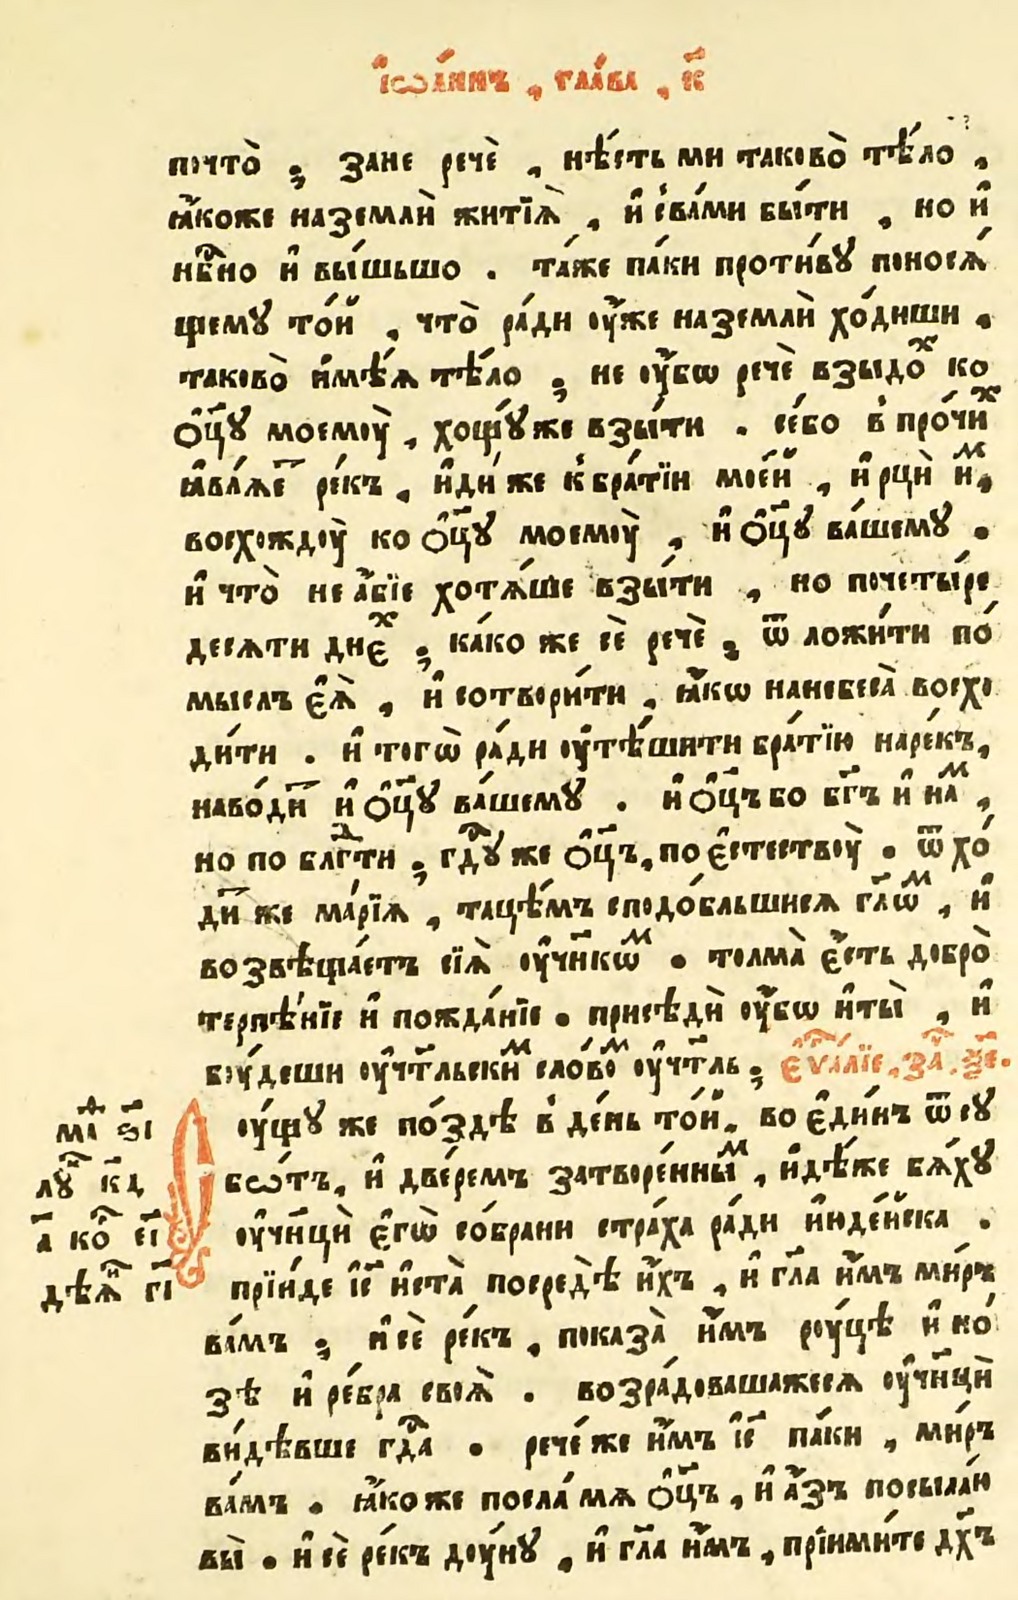 І҆ѡа́ннъ , глава̀ , к҃
почто̀ ; зане речѐ , нѣ́сть ми таково̀ тѣ́ло ,
ꙗ҆́коже на землѝ житїѧ̀ , и҆ с̾ва́ми бы́ти , но и҆
нб҇но и҆ вы́шьшо . та́же па́ки проти́вꙋ поносѧ́
щемꙋ то́й , что̀ ра́ди оу҆́же на землѝ хо́диши .
таково̀ и҆мѣ́ѧ тѣ́ло ; не оу҆́бѡ речѐ взыдо́х ко
ѻ҆ц҃ꙋ моемоу̀ , хощꙋ́ же взы́ти . се́бо в̾ про́чих
ꙗ҆влѧ́е҇ ре́къ , и҆ди́ же к̾ бра́тїи мое́й , и҆ рцѝ и҆м ,
восхождоу̀ ко ѻ҆ц҃ꙋ моемоу̀ , и҆ ѻ҆ц҃ꙋ ва́шемꙋ .
и҆ что̀ не а҆́бїе хотѧ́ше взы́ти , но по четы́ре
десѧти днех ; ка́ко же сѐ речѐ , ѿ ложи́ти по́
мыслъ є҆ѧ̀ , и҆ сотвори́ти , ꙗ҆́кѡ на небеса̀ восхо
ди́ти . и҆ тогѡ̀ ра́ди оу҆тѣ́шити бра́тїю наре́къ ,
наво́ди҇ и҆ ѻ҆ц҃ꙋ ва́шемꙋ . и҆ ѻ҆ц҃ъ бо бг҃ъ и҆ на́м ,
но по блгⷣти ; гдⷭ҇ꙋ же ѻ҆ц҃ъ , по є҆стествоу̀ . ѿхо́
ди҇ же марі́ѧ , тацѣ́мъ сподо́бльшисѧ гл҃ѡм , и҆
возвѣща́етъ сїѧ̀ оу҆чн҃кѡм . толма̀ є҆́сть добро̀
терпѣ́нїе и҆ пожда́нїе . присѣдѝ оу҆́бѡ и҆ ты̀ , и҆
боу́деши оу҆чт҃льским сло́вом оу҆чт҃ль ; є҆ѵⷢ҇а́лїе , за҇ , ѯ҃е .
Соу́щꙋ же по́здѣ в̾ де́нь то́й , во є҆ди́нъ ѿ сꙋ
бѡ́тъ , и҆ две́ремъ затворе́нным , и҆дѣ́же бѧ́хꙋ
оу҆чн҃цѝ є҆гѡ̀ со́брани стра́ха ра́ди и҆юде́йска .
прїи́де і҆с҃ и҆ ста̀ посредѣ̀ и҆́хъ , и҆ гл҃а и҆̀мъ ми́ръ
ва́мъ ; и҆ сѐ ре́къ , показа̀ и҆̀мъ роу́цѣ и҆ но́
зѣ и҆ ре́бра своѧ̀ . возра́довашажесѧ оу҆чн҃цѝ
ви́дѣвше гдⷭ҇а . рече́ же и҆̀мъ і҆с҃ па́ки , ми́ръ
ва́мъ . ꙗ҆́ко же посла́ мѧ ѻ҆ц҃ъ , и҆ а҆́зъ посыла́ю
вы̀ . и҆ сѐ ре́къ доу́нꙋ , и҆ гл҃а и҆̀мъ , прїими́те дх҃ъ
мⷴ҇а ѕ҃і
лꙋⷦ҇ к҃д
а҃ коⷬ҇ є҃і
дѣѧ҆ⷩ҇ г҃і